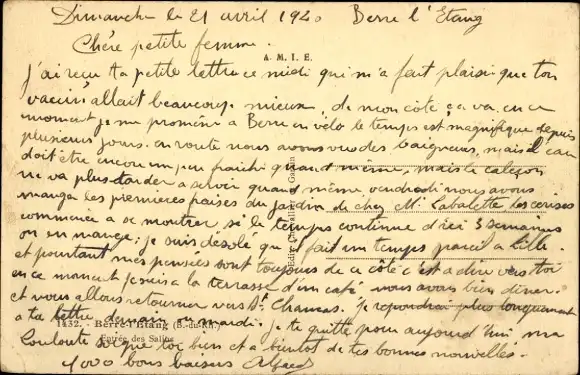 Dimanche le 21 avril 1940 Berre l'Etang
Chère petite femme.
A. M. I. E.
J'ai reçu ta petite lettre ce midi qui m'a fait plaisir que ton
vaccin allait beaucoup mieux, de mon côté ça va. en ce
moment je me promène a Berre en vélo le temps est magnifique depuis
plusieurs jours. en route nous avons vu des baigneurs, mais l'eau
doit être encore un peu fraîche quand même, mais le caleçon
ne va plus tarder a servir quand même, vendredi nous avons
mangé les premières fraises du jardin de chez Mr Cabalette les cerises
commence a se montrer, si le temps continue d'ici 3 semaines
on en mange; je suis désolé qu'il fait un temps pareil a Lille.
et pourtant mes pensées sont toujours de ce côté c'est a dire vers toi
en ce moment je suis a la terrasse d'un café nous avons bien diner.
et nous allons retourner vers St Chamas. Je repondrai plus longuement
a ta lettre demain ou mardi. je te quitte pour aujourd'hui ma
1432. - Berre-l'Etang (B.-du-Rh.)
Entrée des Salins
Louloute soigne toi bien et a bientôt de tes bonnes nouvelles.
1000 bons baisers Alfred